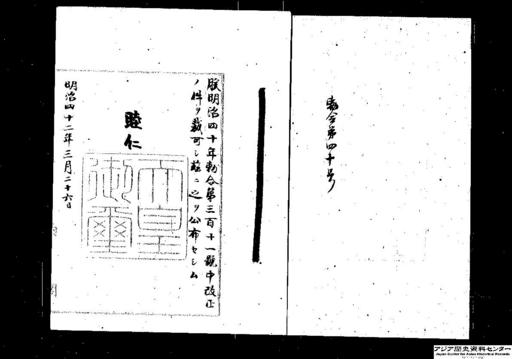 勅令第四十号
朕明治四十年勅令第三百十一號中改正
ノ件ヲ裁可シ茲ニ之ヲ公布セシム
睦仁
天皇御璽
明治四十二年三月二十六日
アジア歴史資料センター
Japan Center for Asian Historical Records